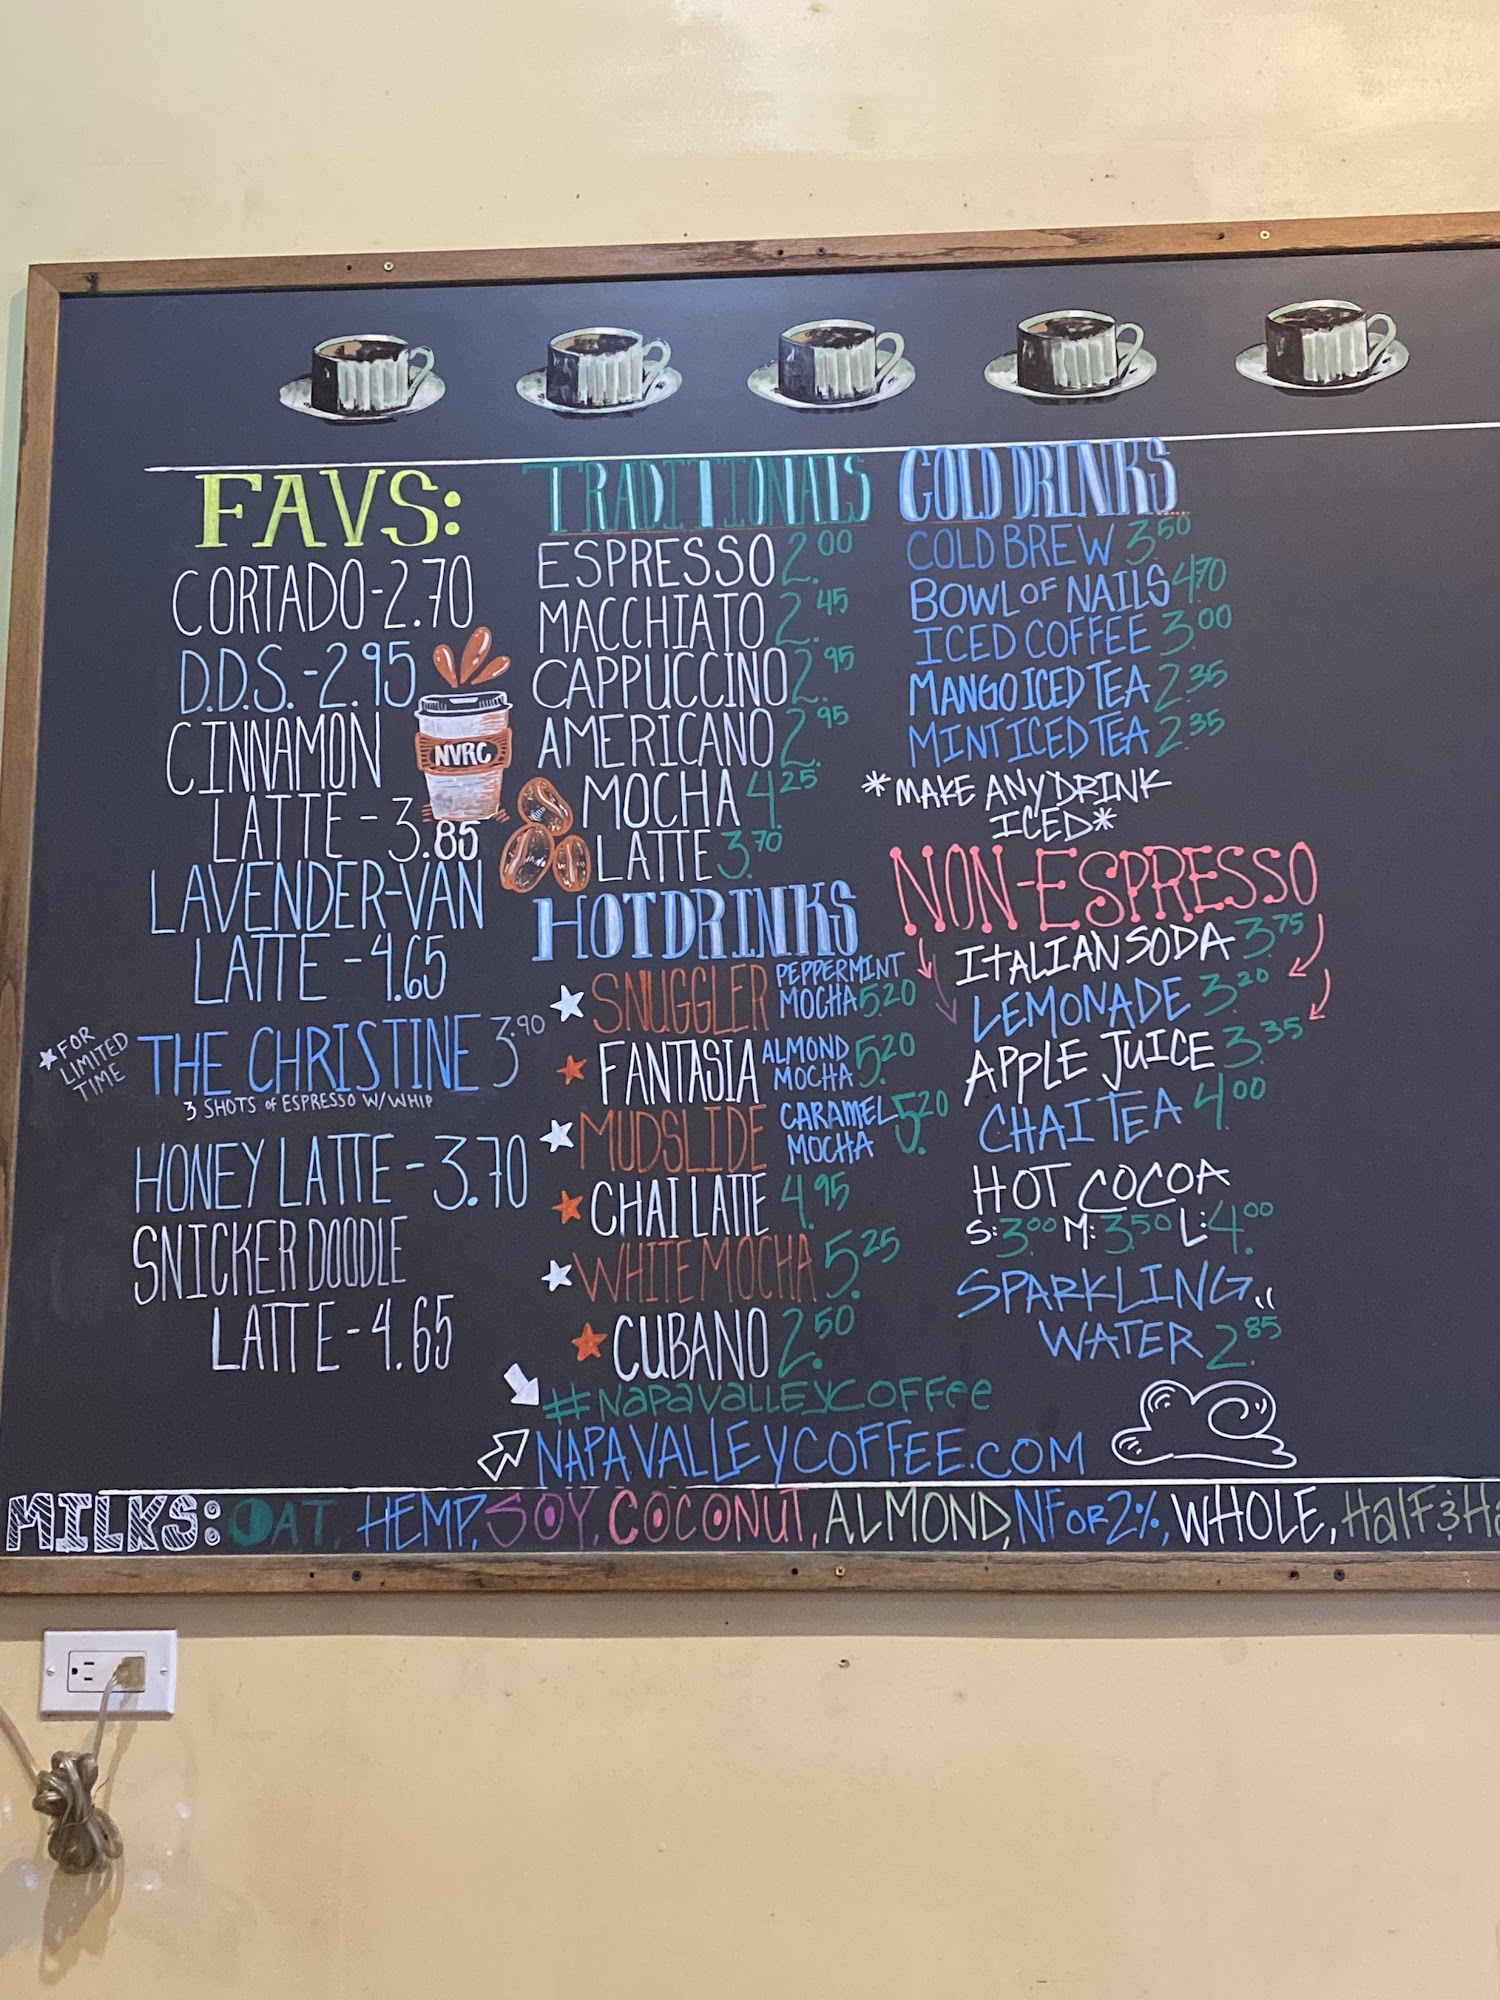 FAVS:
CORTADO-2.70
D.D.S.-2.95
CINNAMON
LATTE-3.85
LAVENDER-VAN
LATTE-4.65
*FOR
LIMITED
TIME
THE CHRISTINE 3.90
3 SHOTS of ESPRESSO W/WHIP
HONEY LATTE-3.70
SNICKER DOODLE
LATTE-4.65
NVRC
TRADITIONALS
ESPRESSO 2.00
MACCHIATO 2.45
CAPPUCCINO 2.95
AMERICANO 2.95
MOCHA 4.25
LATTE 3.70
HOT DRINKS
SNUGGLER PEPPERMINT
MOCHA 5.20
FANTASIA ALMOND
MOCHA 5.20
MUDSLIDE CARAMEL
MOCHA 5.20
CHAI LATTE 4.95
WHITE MOCHA 5.25
CUBANO 2.50
COLD DRINKS
COLD BREW 3.50
BOWL OF NAILS 4.70
ICED COFFEE 3.00
MANGO ICED TEA 2.35
MINT ICED TEA 2.35
*MAKE ANY DRINK
ICED*
NON-ESPRESSO
ITALIAN SODA 3.75
LEMONADE 3.20
APPLE JUICE 3.35
CHAI TEA 4.00
HOT COCOA
S:3.00 M:3.50 L:4.00
SPARKLING
WATER 2.85
#NAPAVALLEYCOFFEE
NAPAVALLEYCOFFEE.COM
MILKS: OAT, HEMP, SOY, COCONUT, ALMOND, NF OR 2%, WHOLE, HALF & HA